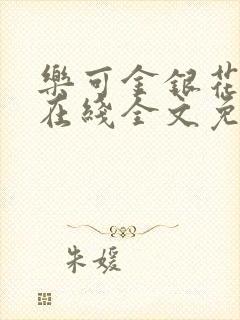 樂可金銀花
在綫全文免
朱媛